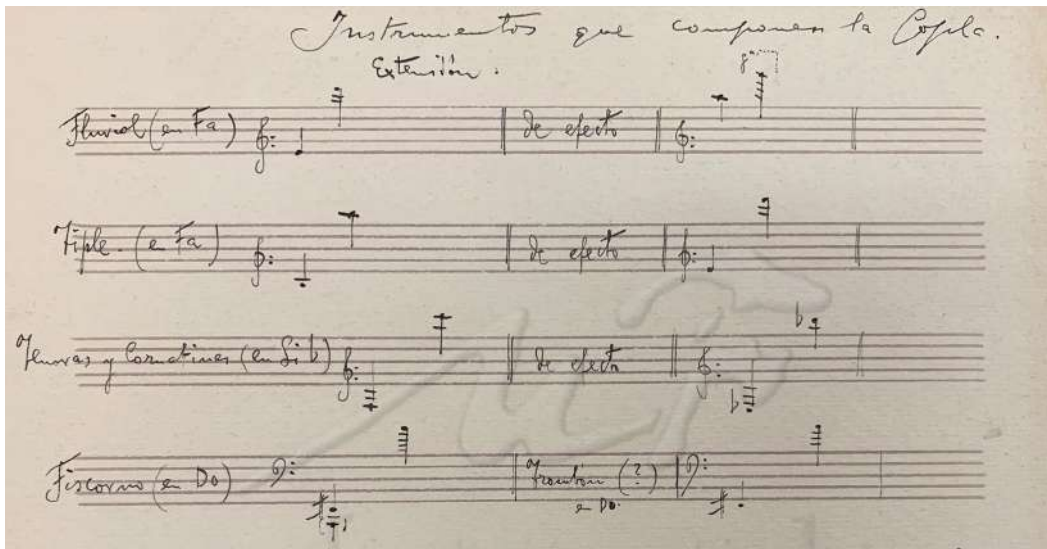 Instrumentos que componen la Copla.
Extensión.
8ª
Fluviol (en Fa) de efecto
Tiple. (en Fa) de efecto
Tenoras y Cornetines (en Si b) de efecto
Fiscorno (en Do) Trombón (?)
en Do.